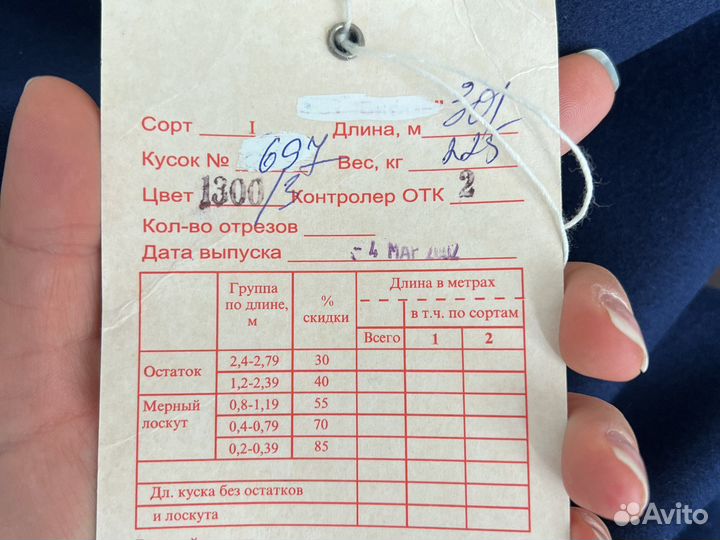 Сорт I Длина, м
Кусок № 697 Вес, кг 223
Цвет 1300/3 Контролер ОТК 2
Кол-во отрезов
Дата выпуска - 4 МАР
Группа по длине, м % скидки Длина в метрах
в т.ч. по сортам
Всего 1 2
Остаток 2,4-2,79 30
1,2-2,39 40
Мерный лоскут 0,8-1,19 55
0,4-0,79 70
0,2-0,39 85
Дл. куска без остатков
и лоскута
Avito